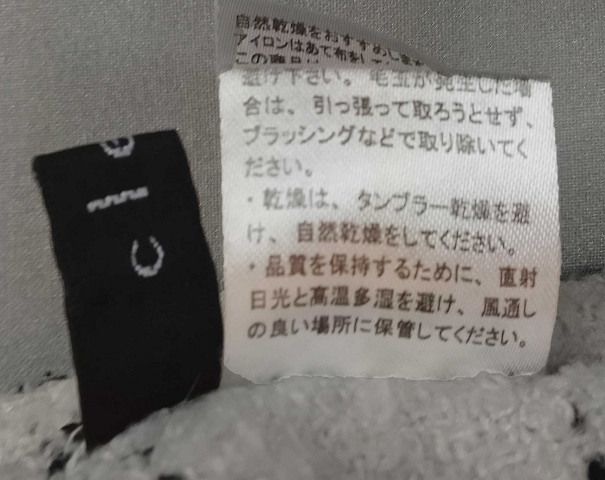 自然乾燥をおすすめします
アイロンはあて布をして
この商品は
避け下さい。毛玉が発生した場
合は、引っ張って取ろうとせず、
ブラッシングなどで取り除いてく
ださい。
・乾燥は、タンブラー乾燥を避
け、自然乾燥をしてください。
・品質を保持するために、直射
日光と高温多湿を避け、風通し
の良い場所に保管してください。